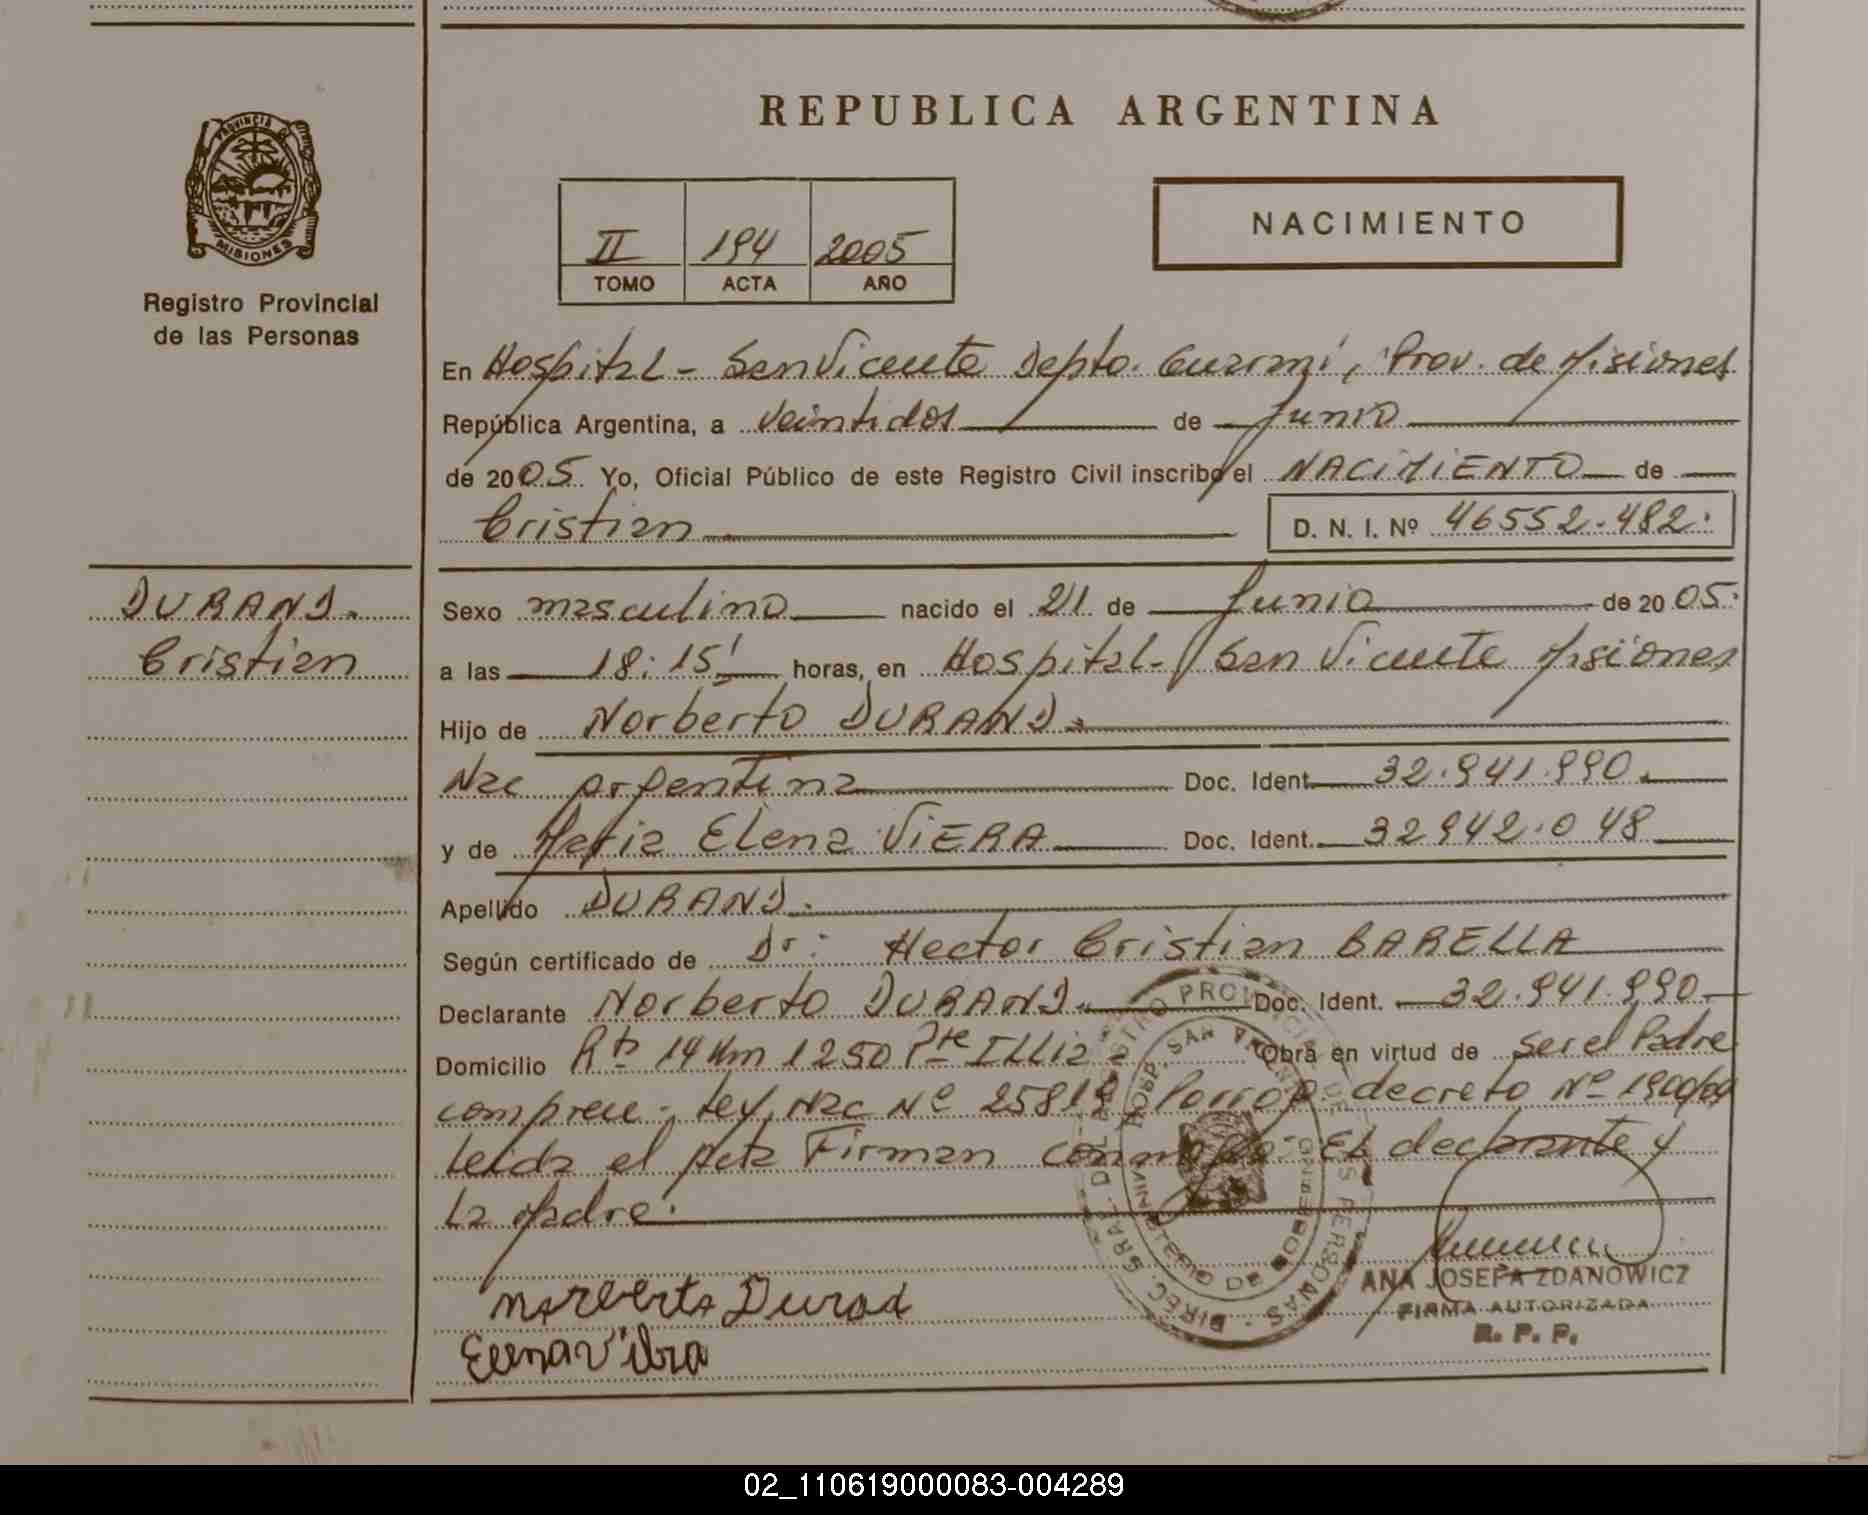 PROVINCIA DE
MISIONES
Registro Provincial
de las Personas
DURAND.
Cristian
REPUBLICA ARGENTINA
II 194 2005
TOMO ACTA AÑO
NACIMIENTO
En Hospital - San Vicente Depto. Guarani, Prov. de Misiones
República Argentina, a veintidos de Junio
de 2005 Yo, Oficial Público de este Registro Civil inscribo el NACIMIENTO de
Cristian D. N. I. Nº 46552.482.
Sexo masculino nacido el 21 de Junio de 2005.
a las 18:15' horas, en Hospital - San Vicente Misiones
Hijo de Norberto DURAND.
Nac argentina Doc. Ident. 32.941.990.
y de Maria Elena ViERA Doc. Ident. 32942.048
Apellido DURAND.
Según certificado de Dr: Hector Cristian BARELLA
Declarante Norberto DURAND. Doc. Ident. 32.941.990
Domicilio Rta 14 Km 1250 Pte ILLia - Obra en virtud de ser el Padre
- Ley Nac Nº decreto Nº 1900/04
Leida el Acta Firman conmigo - El declarante y
La Madre.
Norberto Durad
ANA JOSEFA ZDANOWICZ
FIRMA AUTORIZADA
R. P. P.
02_110619000083-004289